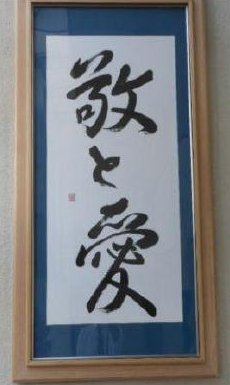 敬と愛